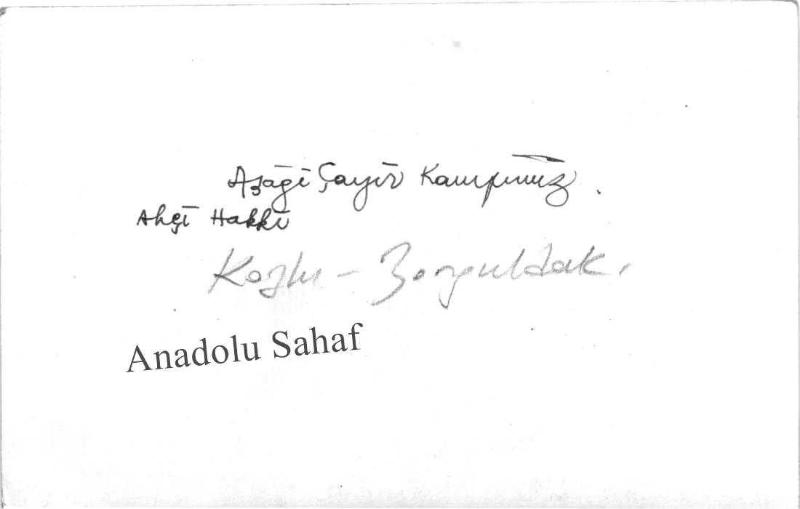 Aşağı Çayır Kampımız.
Ahçı Hakkı
Kozlu - Zonguldak.
Anadolu Sahaf